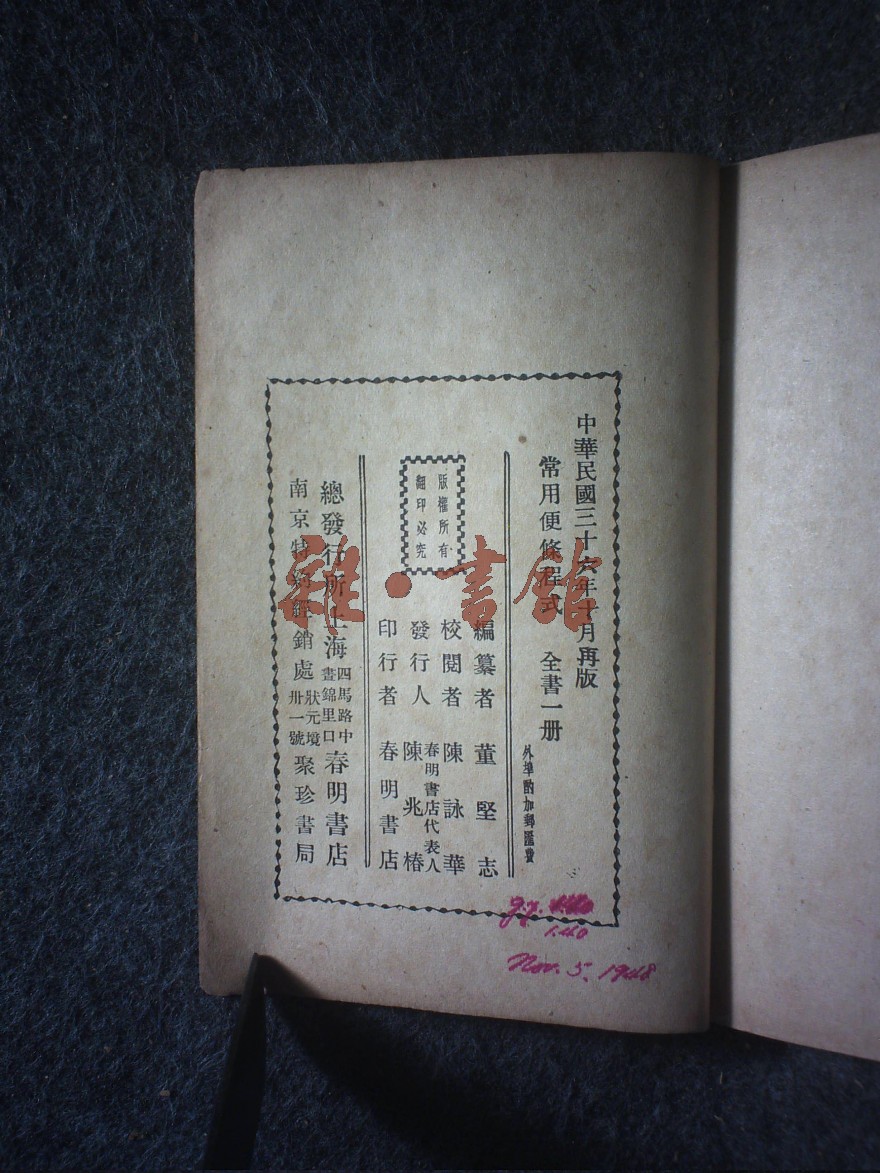 中華民國三十六年十月再版
常用便條程式 全書一册
外埠酌加郵匯費
編纂者 董堅志
校閱者 陳詠華
發行人 春明書店代表人 陳兆椿
印行者 春明書店
版權所有
翻印必究
總發行所 上海 四馬路中 晝錦里口 春明書店
南京特約經銷處 狀元境 卅一號 聚珍書局
雜·書館
1.40
Nov. 5. 1948